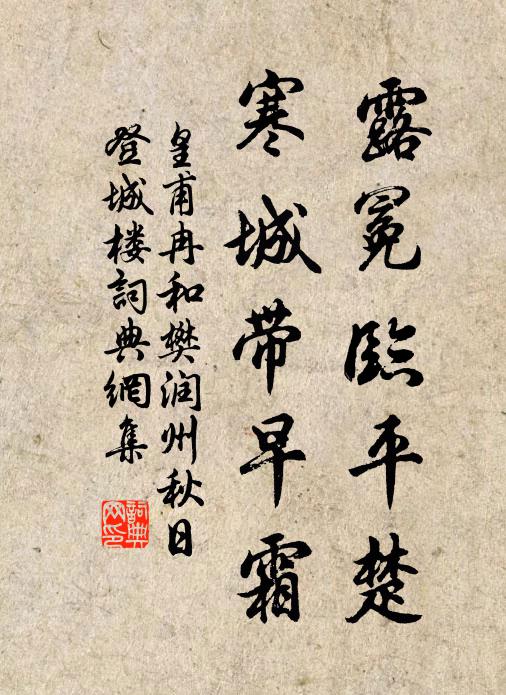 露冕临平楚
寒城带早霜
皇甫冉和樊润州秋日
登城楼词典網集
詞典
网印